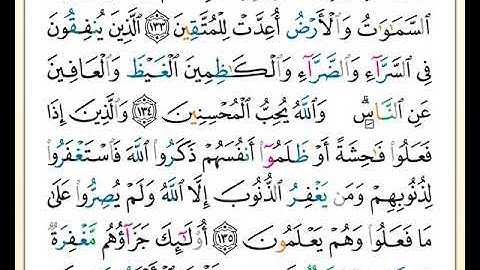 السَّمَٰوَٰتُ وَالْأَرْضُ أُعِدَّتْ لِلْمُتَّقِينَ ١٣٣ الَّذِينَ يُنفِقُونَ
فِي السَّرَّآءِ وَالضَّرَّآءِ وَالْكَٰظِمِينَ الْغَيْظَ وَالْعَافِينَ
عَنِ النَّاسِ ۗ وَاللَّهُ يُحِبُّ الْمُحْسِنِينَ ١٣٤ وَالَّذِينَ إِذَا
فَعَلُوا۟ فَٰحِشَةً أَوْ ظَلَمُوٓا۟ أَنفُسَهُمْ ذَكَرُوا۟ اللَّهَ فَاسْتَغْفَرُوا۟
لِذُنُوبِهِمْ وَمَن يَغْفِرُ الذُّنُوبَ إِلَّا اللَّهُ وَلَمْ يُصِرُّوا۟ عَلَىٰ
مَا فَعَلُوا۟ وَهُمْ يَعْلَمُونَ ١٣٥ أُو۟لَٰٓئِكَ جَزَآؤُهُم مَّغْفِرَةٌ